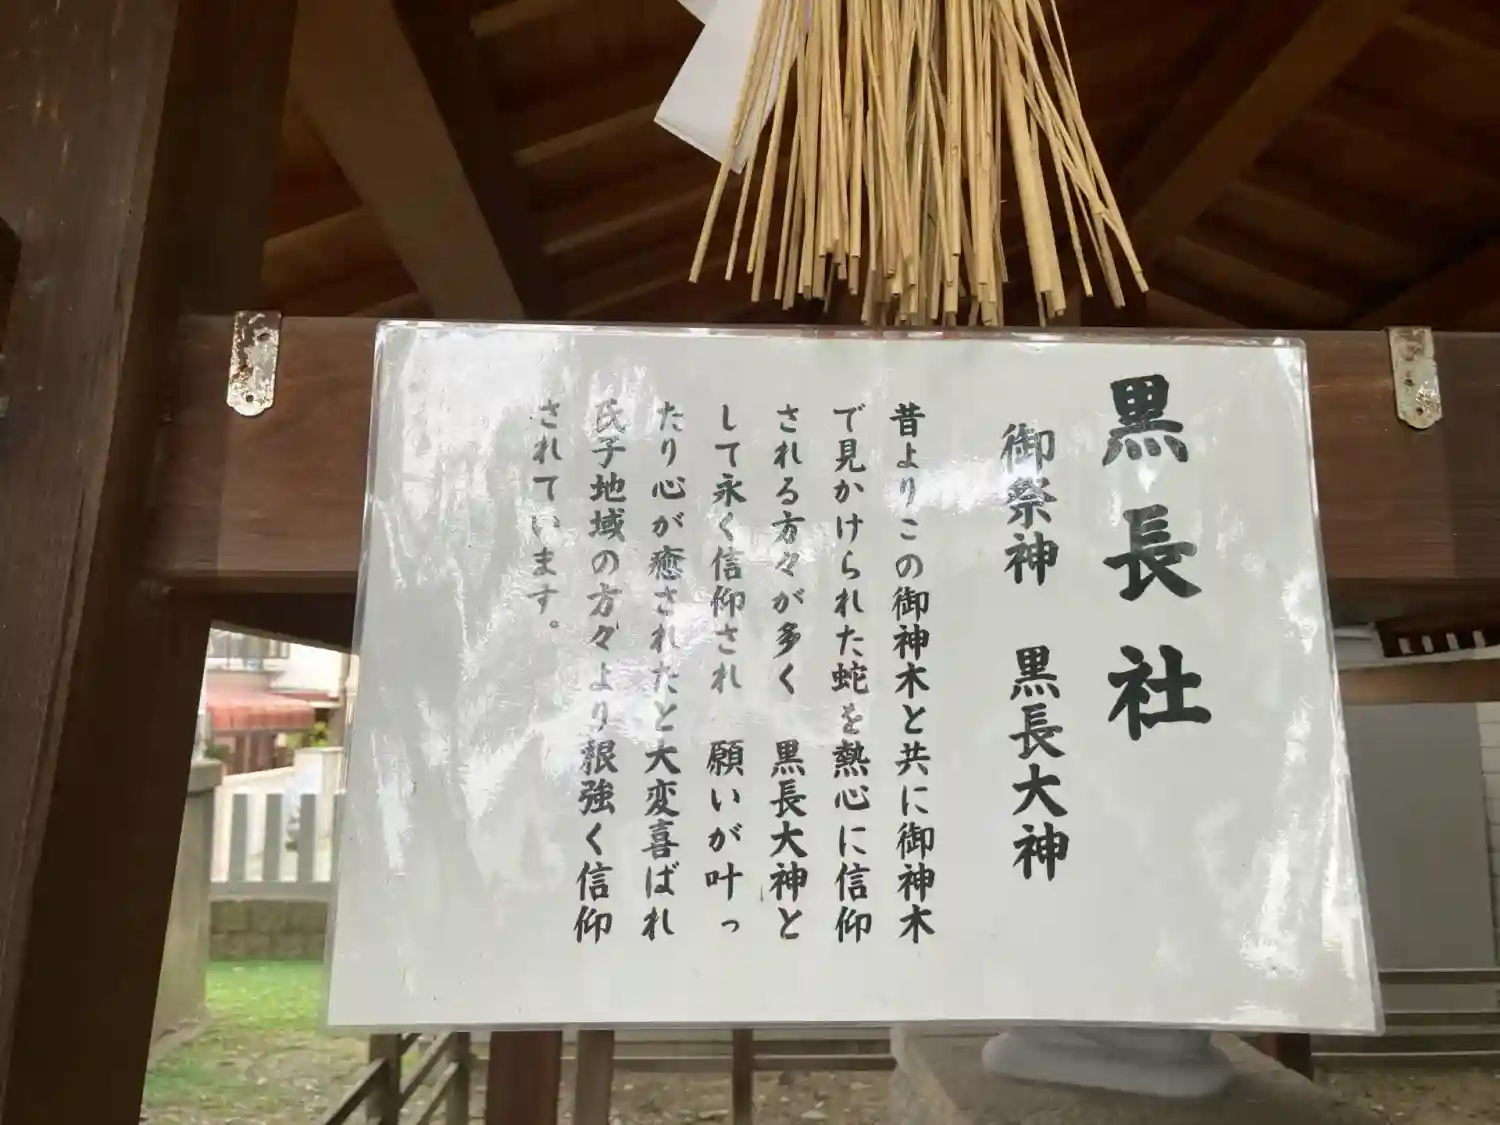 黒長社
御祭神　黒長大神
昔よりこの御神木と共に御神木
で見かけられた蛇を熱心に信仰
される方々が多く　黒長大神と
して永く信仰され　願いが叶っ
たり心が癒されたと大変喜ばれ
氏子地域の方々より根強く信仰
されています。